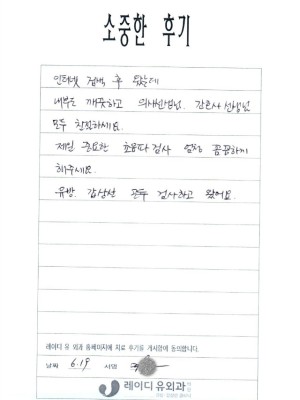 소중한 후기
인터넷 검색 후 왔는데
내부도 깨끗하고 의사선생님, 간호사 선생님
모두 친절하세요.
제일 중요한 초음파 검사 엄청 꼼꼼하게
해주세요.
유방, 갑상선 모두 검사하고 왔어요.
레이디 유 외과 홈페이지에 치료 후기를 게시함에 동의합니다.
날짜 6.19 서명
레이디유외과